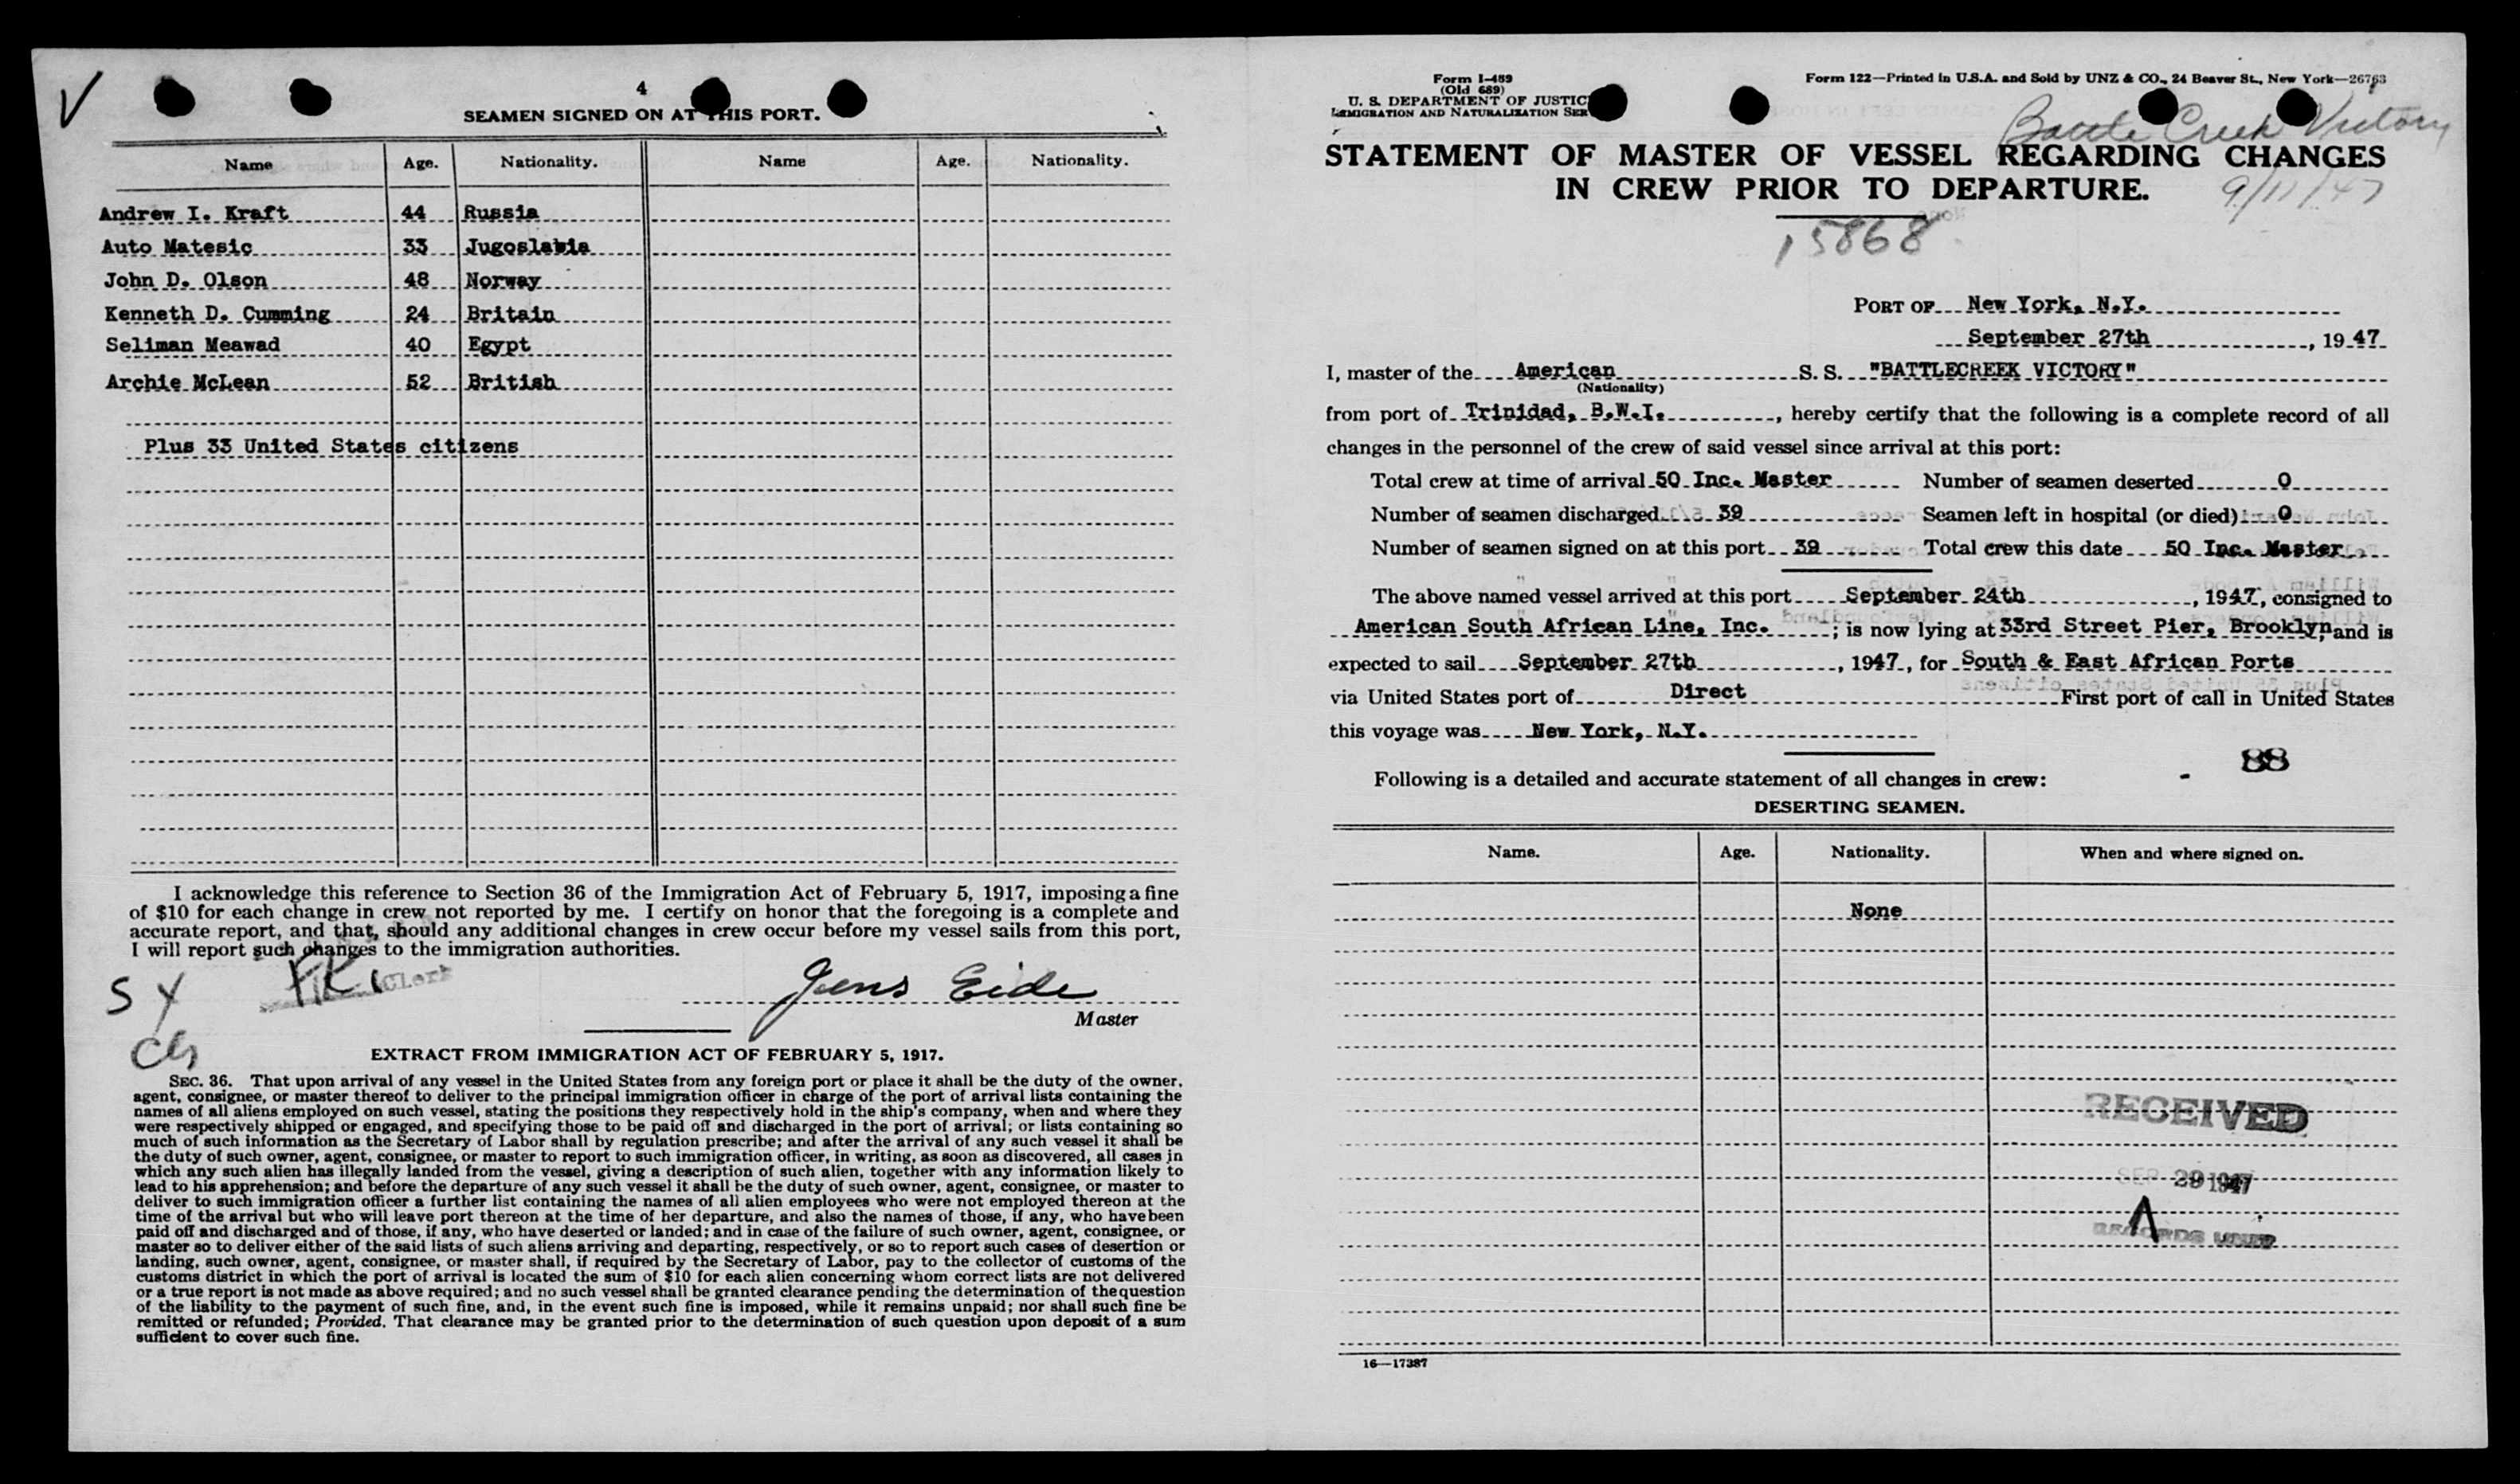 4
SEAMEN SIGNED ON AT THIS PORT.
Name Age. Nationality. Name Age. Nationality.
Andrew I. Kraft 44 Russia
Auto Matesic 33 Jugoslabia
John D. Olson 48 Norway
Kenneth D. Cumming 24 Britain
Seliman Meawad 40 Egypt
Archie McLean 52 British
Plus 33 United States citizens
I acknowledge this reference to Section 36 of the Immigration Act of February 5, 1917, imposing a fine
of $10 for each change in crew not reported by me. I certify on honor that the foregoing is a complete and
accurate report, and that, should any additional changes in crew occur before my vessel sails from this port,
I will report such changes to the immigration authorities.
Clerk
Jens Eide
Master
EXTRACT FROM IMMIGRATION ACT OF FEBRUARY 5, 1917.
SEC. 36. That upon arrival of any vessel in the United States from any foreign port or place it shall be the duty of the owner,
agent, consignee, or master thereof to deliver to the principal immigration officer in charge of the port of arrival lists containing the
names of all aliens employed on such vessel, stating the positions they respectively hold in the ship's company, when and where they
were respectively shipped or engaged, and specifying those to be paid off and discharged in the port of arrival; or lists containing so
much of such information as the Secretary of Labor shall by regulation prescribe; and after the arrival of any such vessel it shall be
the duty of such owner, agent, consignee, or master to report to such immigration officer, in writing, as soon as discovered, all cases in
which any such alien has illegally landed from the vessel, giving a description of such alien, together with any information likely to
lead to his apprehension; and before the departure of any such vessel it shall be the duty of such owner, agent, consignee, or master to
deliver to such immigration officer a further list containing the names of all alien employees who were not employed thereon at the
time of the arrival but who will leave port thereon at the time of her departure, and also the names of those, if any, who have been
paid off and discharged and of those, if any, who have deserted or landed; and in case of the failure of such owner, agent, consignee, or
master so to deliver either of the said lists of such aliens arriving and departing, respectively, or so to report such cases of desertion or
landing, such owner, agent, consignee, or master shall, if required by the Secretary of Labor, pay to the collector of customs of the
customs district in which the port of arrival is located the sum of $10 for each alien concerning whom correct lists are not delivered
or a true report is not made as above required; and no such vessel shall be granted clearance pending the determination of the question
of the liability to the payment of such fine, and, in the event such fine is imposed, while it remains unpaid; nor shall such fine be
remitted or refunded; Provided, That clearance may be granted prior to the determination of such question upon deposit of a sum
sufficient to cover such fine.
Form I-489
(Old 689)
U. S. DEPARTMENT OF JUSTIC
IMMIGRATION AND NATURALIZATION SER
Form 122—Printed in U.S.A. and Sold by UNZ & CO., 24 Beaver St., New York—26763
Battle Creek Victory
STATEMENT OF MASTER OF VESSEL REGARDING CHANGES
IN CREW PRIOR TO DEPARTURE.
9/11/47
15868
PORT OF New York, N.Y.
September 27th, 1947
I, master of the American S. S. "BATTLECREEK VICTORY"
(Nationality)
from port of Trinidad, B.W.I., hereby certify that the following is a complete record of all
changes in the personnel of the crew of said vessel since arrival at this port:
Total crew at time of arrival 50 Inc. Master Number of seamen deserted 0
Number of seamen discharged 39 Seamen left in hospital (or died) 0
Number of seamen signed on at this port 39 Total crew this date 50 Inc. Master
The above named vessel arrived at this port September 24th, 1947, consigned to
American South African Line, Inc.; is now lying at 33rd Street Pier, Brooklyn, and is
expected to sail September 27th, 1947, for South & East African Ports
via United States port of Direct First port of call in United States
this voyage was New York, N.Y.
88
Following is a detailed and accurate statement of all changes in crew:
DESERTING SEAMEN.
Name. Age. Nationality. When and where signed on.
None
RECEIVED
SEP 29 1947
RECORDS UNIT
16—17387